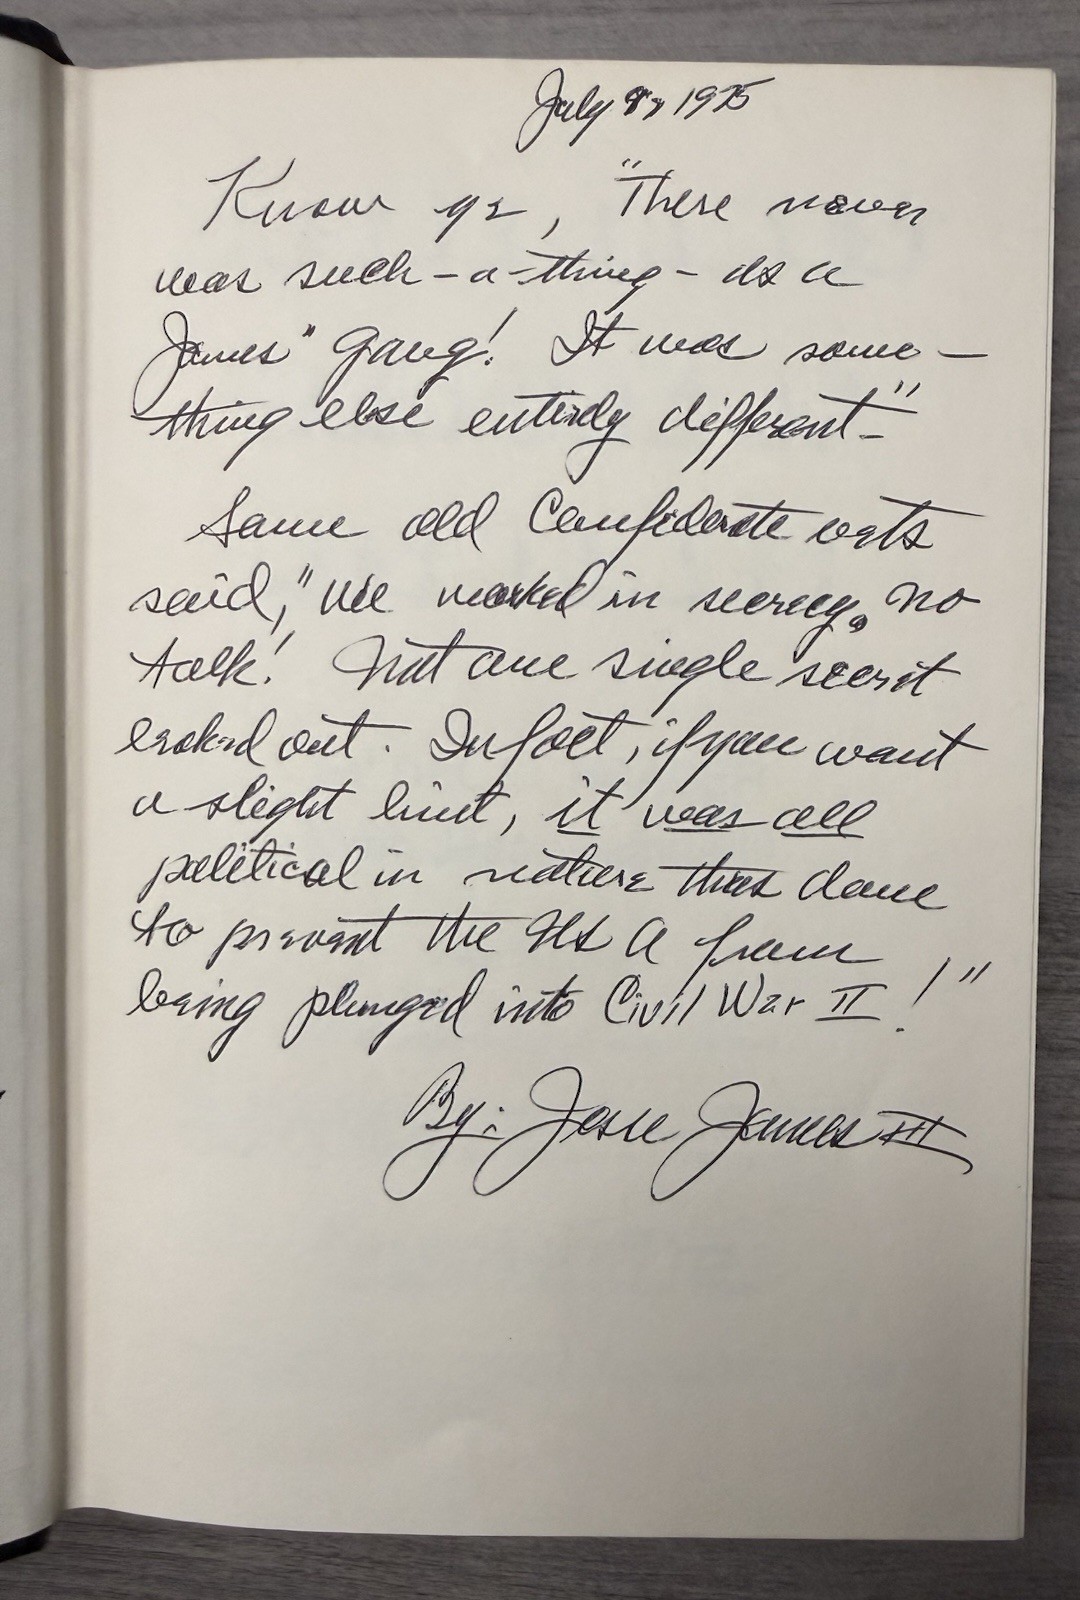 July 8, 1975
Know ye, "There never
was such-a-thing-as a
James" Gang! It was some-
thing else entirely different-"
Some old Confederate vets
said, "We worked in secrecy. No
talk! Not one single secret
leaked out. In fact, if you want
a slight hint, it was all
political in nature thus done
to prevent the USA from
being plunged into Civil War II!"
By: Jesse James III